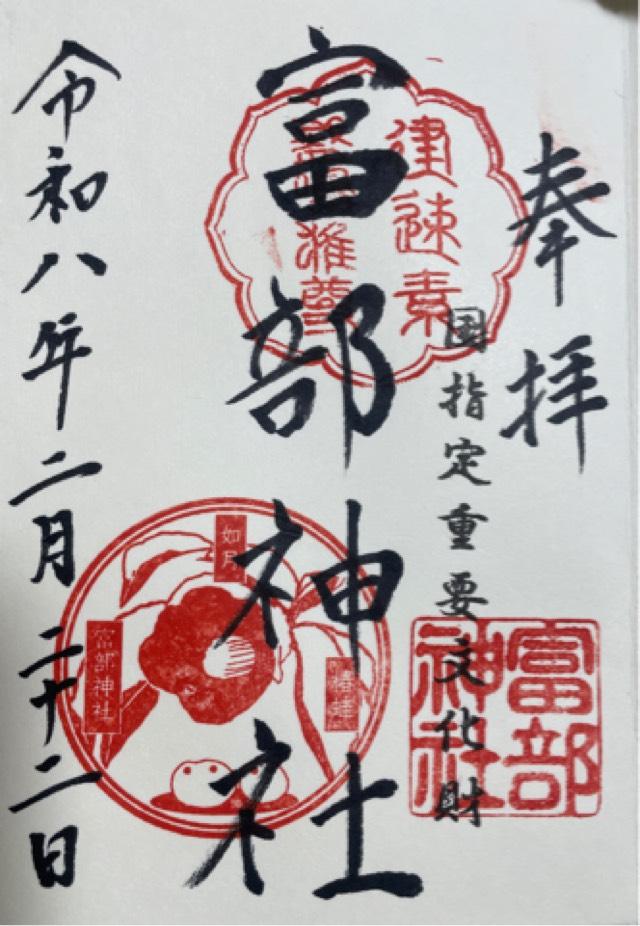 奉拝
国指定重要文化財
富部神社
建速素
盞雄尊
富部神社
如月
椿
富部神社
令和八年二月二十二日